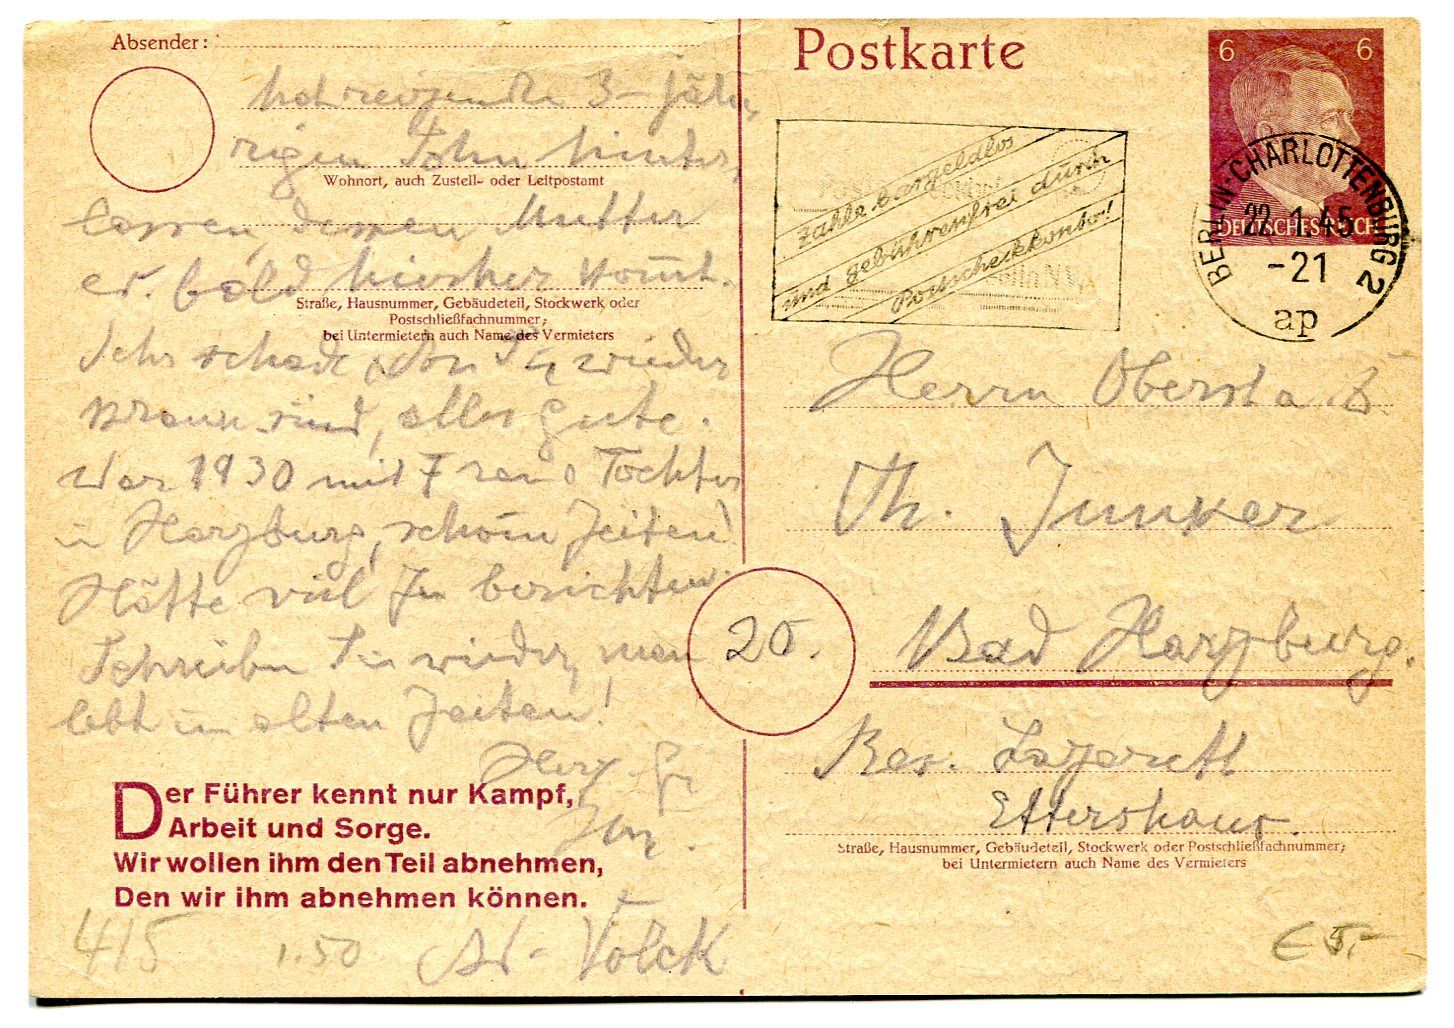 Absender:
hat reizenden 3-jäh-
rigen Sohn hinter-
Wohnort, auch Zustell- oder Leitpostamt
lassen, dessen Mutter
er. bald hierher kommt.
Straße, Hausnummer, Gebäudeteil, Stockwerk oder
Postschließfachnummer;
bei Untermietern auch Name des Vermieters
Sehr schade, dass Sie wieder
krank sind, alles Gute.
War 1930 mit Frau u Tochter
in Harzburg, schöne Zeiten!
Hätte viel zu berichten.
Schreiben Sie wieder, man
lebt in alten Zeiten!
Herz. Gr
Ihr.
Der Führer kennt nur Kampf,
Arbeit und Sorge.
Wir wollen ihm den Teil abnehmen,
Den wir ihm abnehmen können.
415 1.50 Volck
Postkarte
6 6
DEUTSCHES REICH
BERLIN-CHARLOTTENBURG 2
22.1.45
-21
ap
Zahle bargeldlos
und gebührenfrei durch
Postscheckkonto!
Herrn Oberst a
Th. Junker
20.
Bad Harzburg.
Res. Lazarett
Ettershaus.
Straße, Hausnummer, Gebäudeteil, Stockwerk oder Postschließfachnummer;
bei Untermietern auch Name des Vermieters
€ 5.-